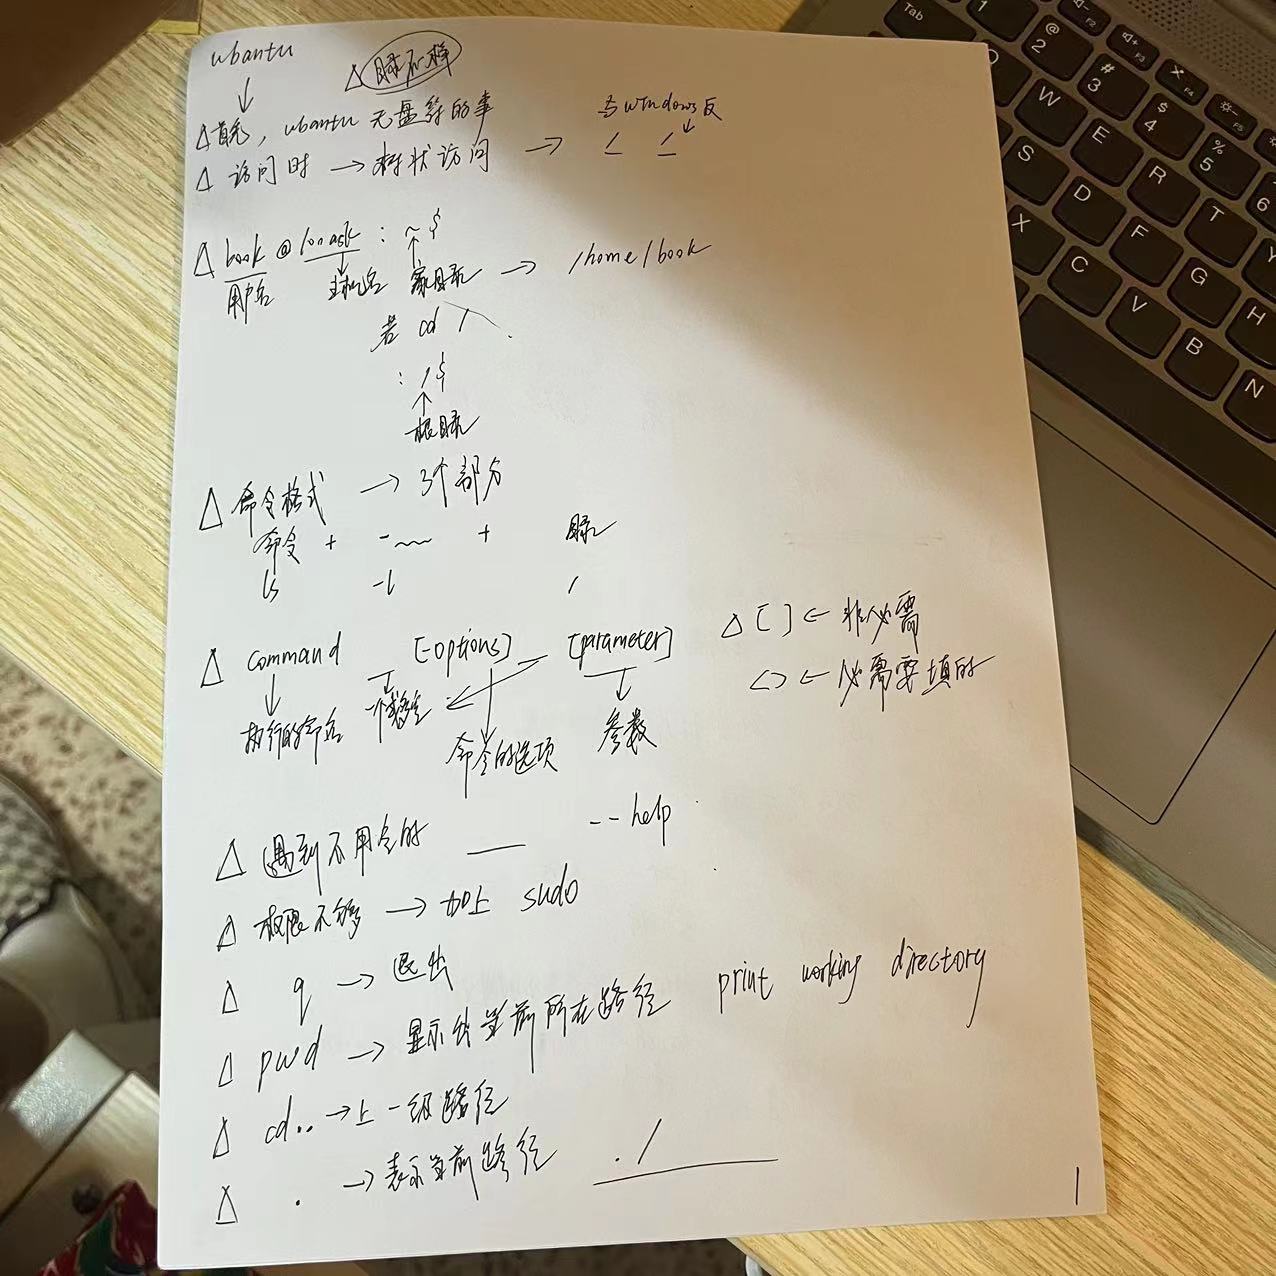 ubantu
△ 目录不择
△ 首先，ubantu 无盘符的事 与windows反
△ 访问时 → 树状访问 → / /
△ book @ 100ask : ~ $
用户名 主机名 家目录 → /home/book
若 cd /
: / $
根目录
△ 命令格式 → 3个部分
命令 + -~~~ + 目录
ls -l /
△ command [-options] [parameter] △ [ ] ← 非必需
<> ← 必需要填的
执行的命名 命令的选项 参数
△ 遇到不用会的 ____ --help
△ 权限不够 → 加上 sudo
△ q → 退出
△ pwd → 显示出当前所在路径 print working directory
△ cd.. → 上一级路径
△ . → 表示当前路径 ./
1